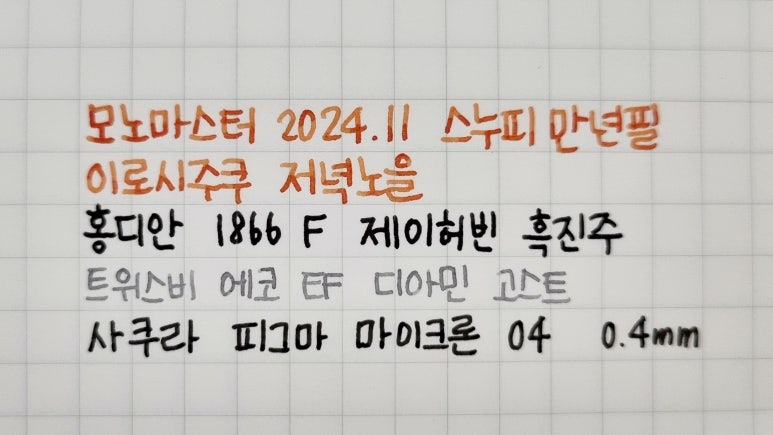 모노마스터 2024.11 스누피 만년필
이로시주쿠 저녁노을
홍디안 1866 F 제이허빈 흑진주
트위스비 에코 EF 디아민 고스트
사쿠라 피그마 마이크론 04 0.4mm